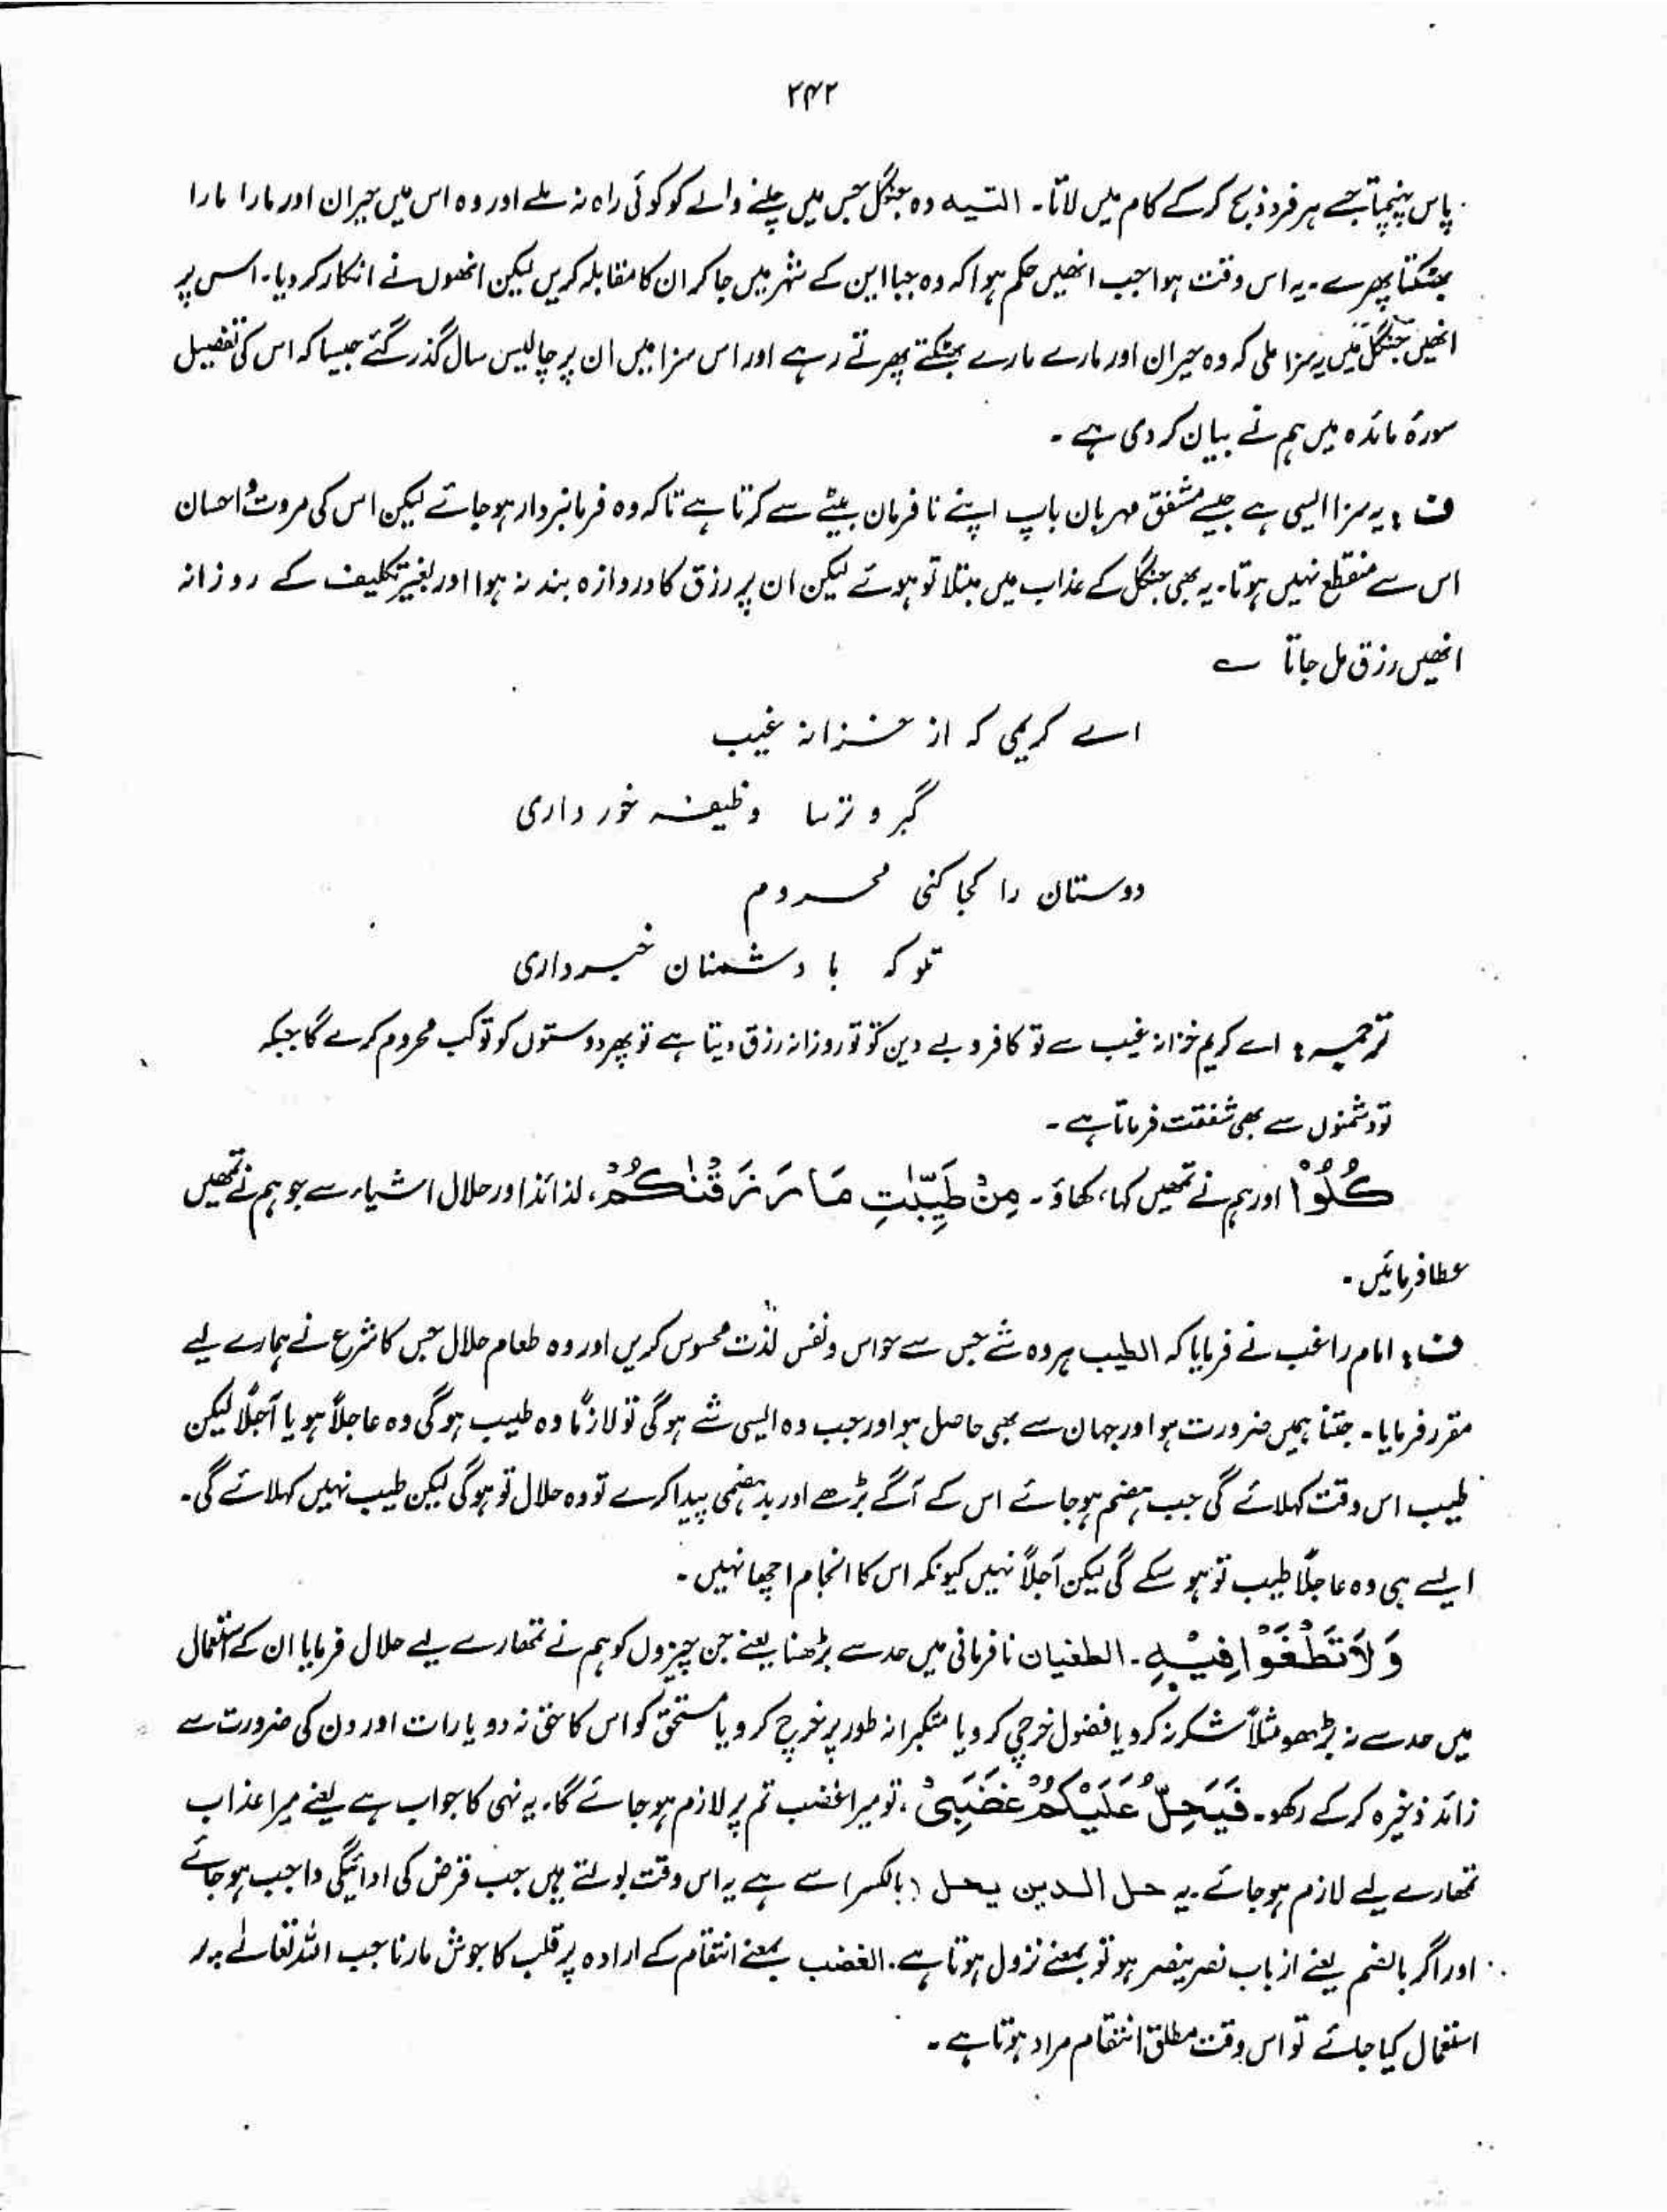 ۲۴۲
پاس پہنچتا جسے ہر فرد ذبح کر کے کام میں لاتا۔ التیہ وہ جنگل جس میں چلنے والے کو کوئی راہ نہ ملے اور وہ اس میں حیران اور مارا مارا
بھٹکتا پھرے۔ یہ اس وقت ہوا جب انھیں حکم ہوا کہ وہ جبابرین کے شہر میں جا کر ان کا مقابلہ کریں لیکن انھوں نے انکار کر دیا۔ اس پر
انھیں جنگل میں یہ سزا ملی کہ وہ حیران اور مارے مارے بھٹکتے پھرتے رہے اور اس سزا میں ان پر چالیس سال گذر گئے جیسا کہ اس کی تفصیل
سورۂ مائدہ میں ہم نے بیان کر دی ہے۔
ف : یہ سزا ایسی ہے جیسے مشفق مہربان باپ اپنے نافرمان بیٹے سے کرتا ہے تاکہ وہ فرمانبردار ہو جائے لیکن اس کی مروت و احسان
اس سے منقطع نہیں ہوتا۔ یہ بھی جنگل کے عذاب میں مبتلا تو ہوئے لیکن ان پر رزق کا دروازہ بند نہ ہوا اور بغیر تکلیف کے روزانہ
انھیں رزق مل جاتا ؎
اے کریمی کہ از خزانہ غیب
گبر و ترسا وظیفہ خور داری
دوستان را کجا کنی محروم
تو کہ با دشمنان خبرداری
ترجمہ : اے کریم خزانہ غیب سے تو کافر و بے دین کو تو روزانہ رزق دیتا ہے تو پھر دوستوں کو تو کب محروم کرے گا جبکہ
تو دشمنوں سے بھی شفقت فرماتا ہے۔
كُلُوْا اور ہم نے تمھیں کہا، کھاؤ۔ مِنْ طَيِّبٰتِ مَا رَزَقْنٰكُمْ، لذائذ اور حلال اشیاء سے جو ہم نے تمھیں
عطا فرمائیں۔
ف : امام راغب نے فرمایا کہ الطیب ہر وہ شے جس سے حواس و نفس لذت محسوس کریں اور وہ طعام حلال جس کا شرع نے ہمارے لیے
مقرر فرمایا۔ جتنا ہمیں ضرورت ہو اور جہان سے بھی حاصل ہو اور جب وہ ایسی شے ہوگی تو لازمًا وہ طیب ہوگی وہ عاجلاً ہو یا آجلاً لیکن
طیب اس وقت کہلائے گی جب ہضم ہو جائے اس کے آگے بڑھے اور بدہضمی پیدا کرے تو وہ حلال تو ہوگی لیکن طیب نہیں کہلائے گی۔
ایسے ہی وہ عاجلاً طیب تو ہو سکے گی لیکن آجلاً نہیں کیونکہ اس کا انجام اچھا نہیں۔
وَلَا تَطْغَوْا فِيْهِ۔ الطغیان نافرمانی میں حد سے بڑھنا یعنے جن چیزوں کو ہم نے تمھارے لیے حلال فرمایا ان کے استعمال
میں حد سے نہ بڑھو مثلاً شکر نہ کرو یا فضول خرچی کرو یا متکبرانہ طور پر خرچ کرو یا مستحق کو اس کا حق نہ دو یا رات اور دن کی ضرورت سے
زائد ذخیرہ کر کے رکھو۔ فَيَحِلَّ عَلَيْكُمْ غَضَبِيْ، تو میرا غضب تم پر لازم ہو جائے گا۔ یہ نہی کا جواب ہے یعنے میرا عذاب
تمھارے لیے لازم ہو جائے۔ یہ حل الدین یحل (بالکسر) سے ہے یہ اس وقت بولتے ہیں جب قرض کی ادائیگی واجب ہو جائے
اور اگر بالضم یعنے از باب نصر ینصر ہو تو بمعنے نزول ہوتا ہے۔ الغضب بمعنے انتقام کے ارادہ پر قلب کا جوش مارنا جب اللہ تعالےٰ پر
استعمال کیا جائے تو اس وقت مطلق انتقام مراد ہوتا ہے۔